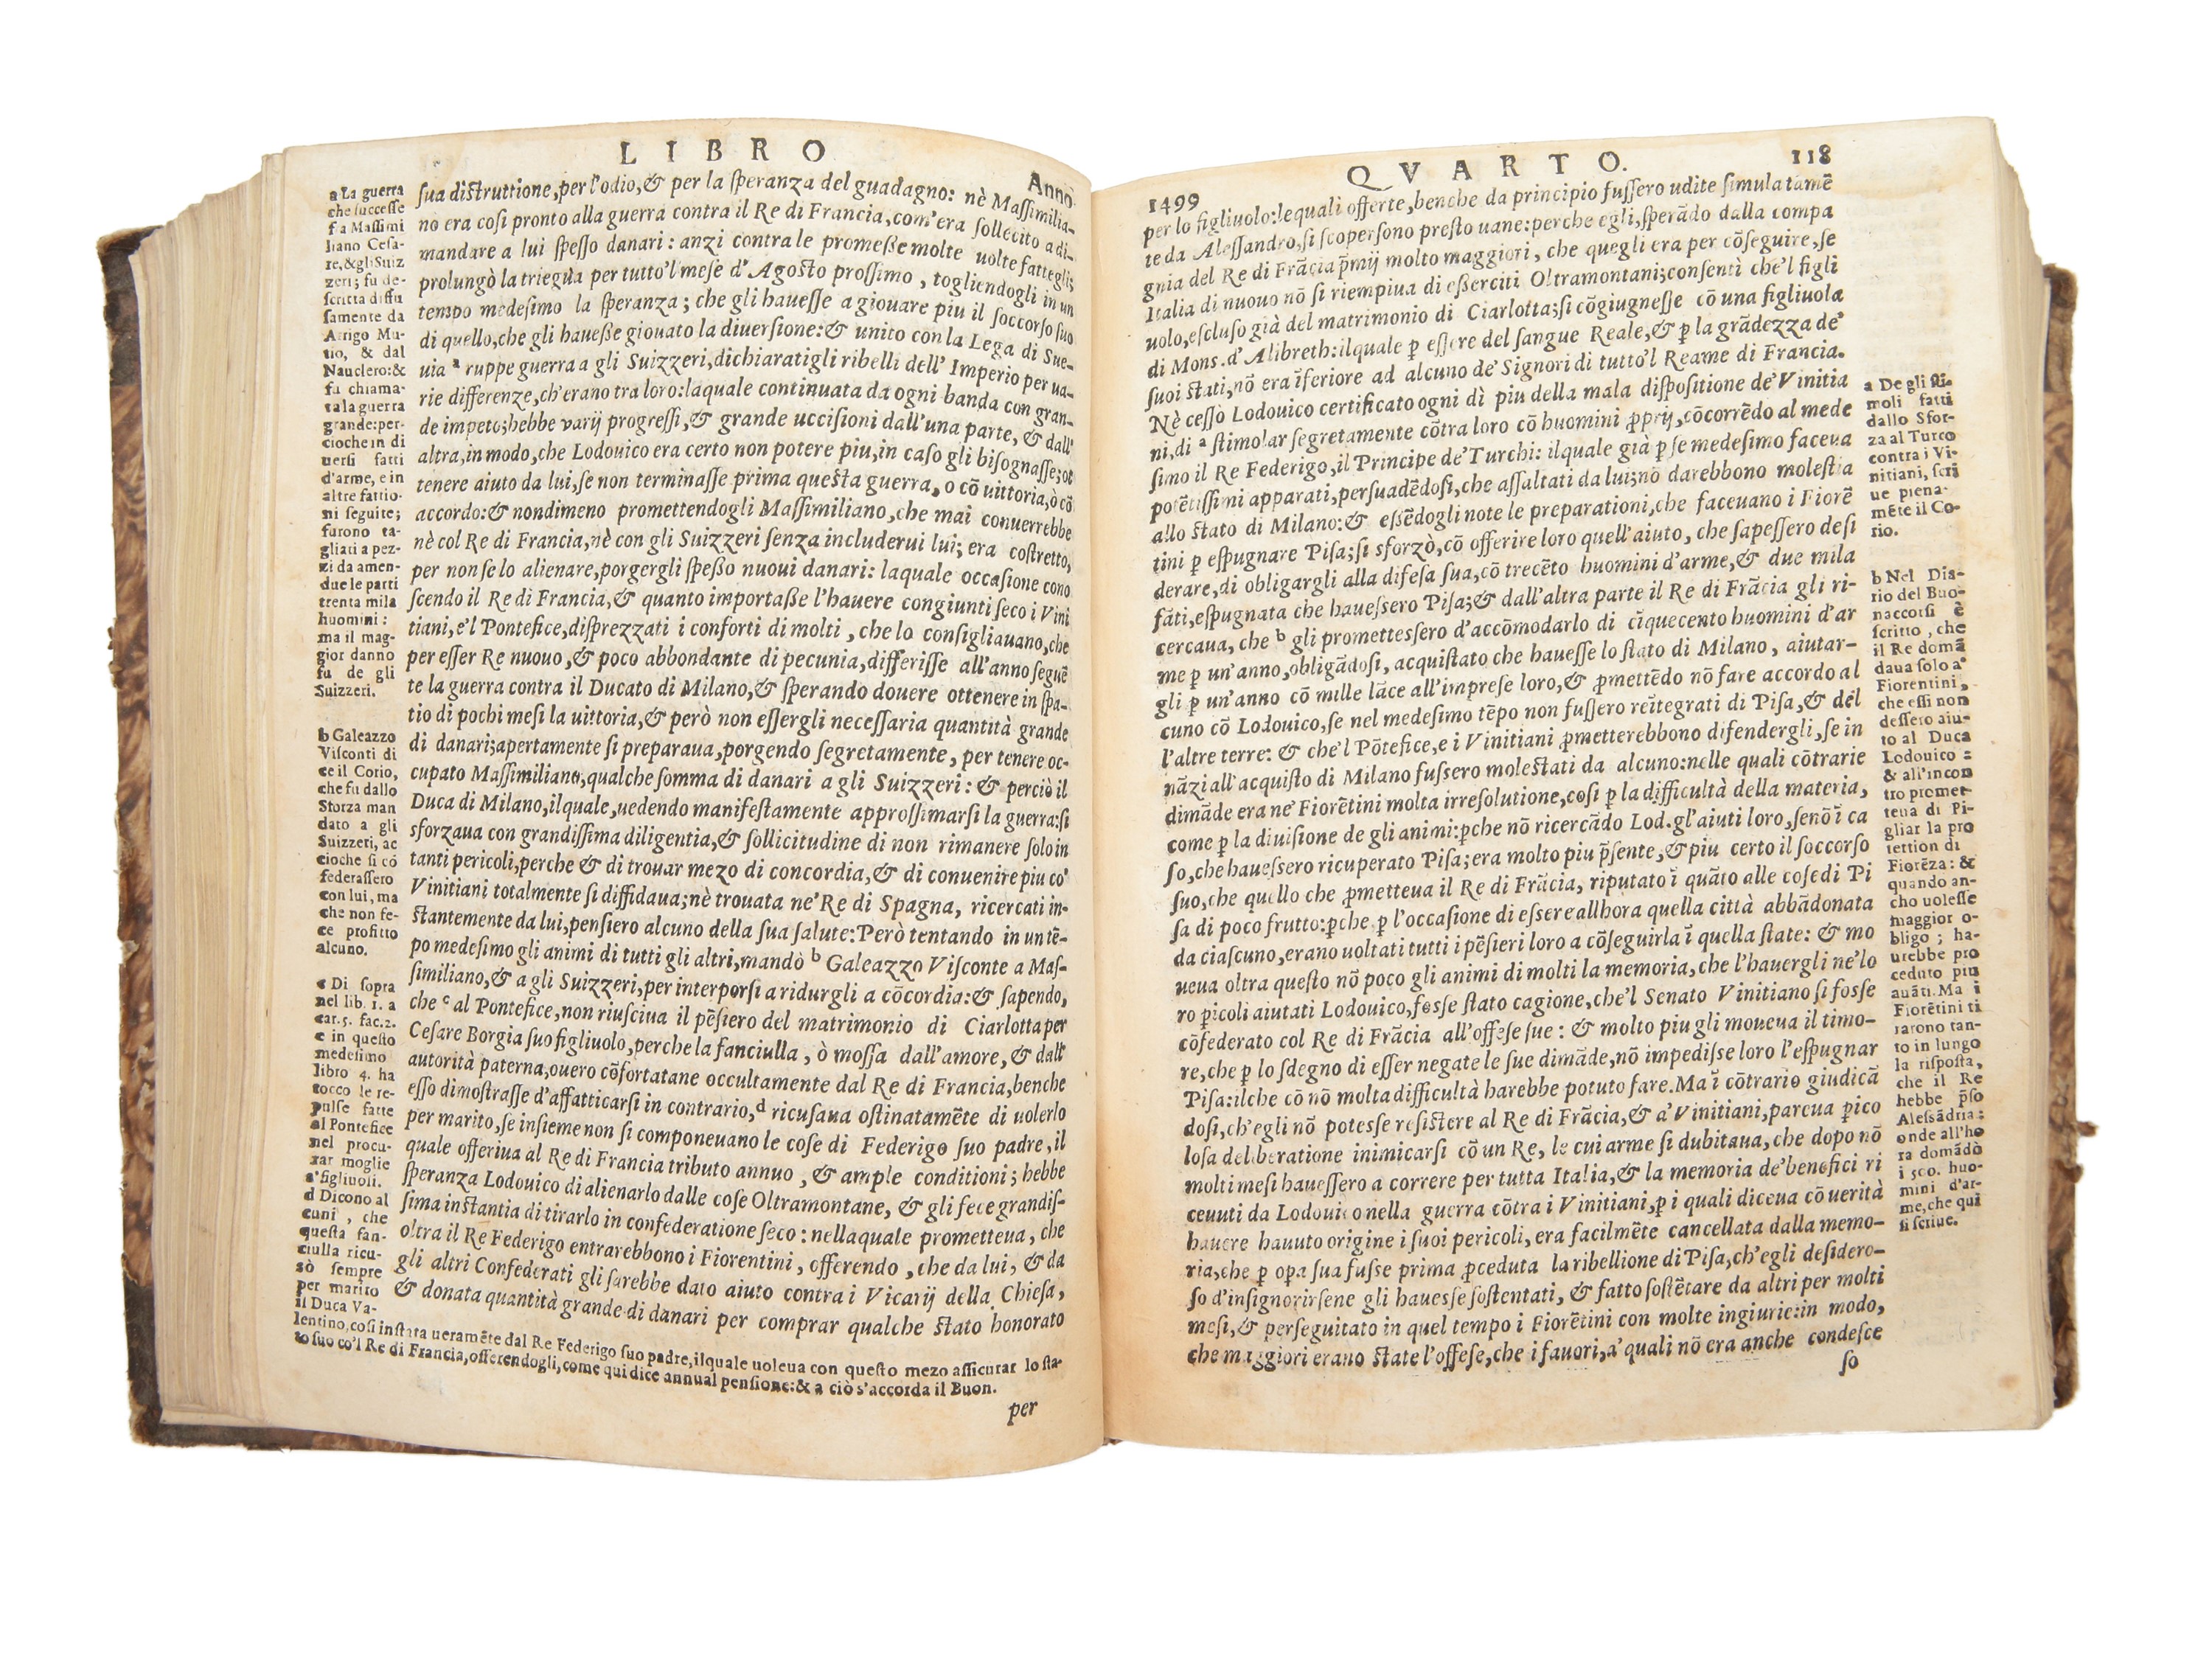 LIBRO
Anno
sua distruttione, per l'odio, & per la speranza del guadagno: nè Massimilia-
no era cosi pronto alla guerra contra il Re di Francia, com'era sollecito a di-
mandare a lui spesso danari: anzi contra le promesse molte uolte fattegli;
prolungò la triegua per tutto'l mese d'Agosto prossimo, togliendogli in un
tempo medesimo la speranza; che gli hauesse a giouare piu il soccorso suo
di quello, che gli hauesse giouato la diuersione: & unito con la Lega di Sue-
uia a ruppe guerra a gli Suizzeri, dichiaratigli ribelli dell'Imperio per ua-
rie differenze, ch'erano tra loro: laquale continuata da ogni banda con gran-
de impeto; hebbe varij progressi, & grande uccisioni dall'una parte, & dall'
altra, in modo, che Lodouico era certo non potere piu, in caso gli bisognasse; ot
tenere aiuto da lui, se non terminasse prima questa guerra, o cō uittoria, ò cō
accordo: & nondimeno promettendogli Massimiliano, che mai conuerrebbe
nè col Re di Francia, nè con gli Suizzeri senza includerui lui; era costretto,
per non se lo alienare, porgergli spesso nuoui danari: laquale occasione cono
scendo il Re di Francia, & quanto importasse l'hauere congiunti seco i Vini
tiani, e'l Pontefice, disprezzati i conforti di molti, che lo consigliauano, che
per esser Re nuouo, & poco abbondante di pecunia, differisse all'anno seguē
te la guerra contra il Ducato di Milano, & sperando douere ottenere in spa-
tio di pochi mesi la uittoria, & però non essergli necessaria quantità grande
di danari; apertamente si preparaua, porgendo segretamente, per tenere oc-
cupato Massimiliano, qualche somma di danari a gli Suizzeri: & perciò il
Duca di Milano, ilquale, uedendo manifestamente approssimarsi la guerra: si
sforzaua con grandissima diligentia, & sollicitudine di non rimanere solo in
tanti pericoli, perche & di trouar mezo di concordia, & di conuenire piu co'
Vinitiani totalmente si diffidaua; nè trouata ne'Re di Spagna, ricercati in-
stantemente da lui, pensiero alcuno della sua salute: Però tentando in un tē-
po medesimo gli animi di tutti gli altri, mandò b Galeazzo Visconte a Mas-
similiano, & a gli Suizzeri, per interporsi a ridurgli a cōcordia: & sapendo,
che c al Pontefice, non riusciua il pēsiero del matrimonio di Ciarlotta per
Cesare Borgia suo figliuolo, perche la fanciulla, ò mossa dall'amore, & dall'
autorità paterna, ouero cōfortatane occultamente dal Re di Francia, benche
esso dimostrasse d'affatticarsi in contrario, d ricusaua ostinatamēte di uolerlo
per marito, se insieme non si componeuano le cose di Federigo suo padre, il
quale offeriua al Re di Francia tributo annuo, & ample conditioni; hebbe
speranza Lodouico di alienarlo dalle cose Oltramontane, & gli fece grandis-
sima instantia di tirarlo in confederatione seco: nella quale prometteua, che
oltra il Re Federigo entrarebbono i Fiorentini, offerendo, che da lui, & da
gli altri Confederati gli sarebbe dato aiuto contra i Vicarij della Chiesa,
& donata quantità grande di danari per comprar qualche stato honorato
per
a La guerra
che successe
fra Massimi
liano Cesa-
re, & gli Suiz
zeri; fu de-
scritta diffu
samente da
Arrigo Mu-
tio, & dal
Nauclero: &
fu chiama-
ta la guerra
grande: per-
cioche in di
uersi fatti
d'arme, e in
altre fattio-
ni seguite;
furono ta-
gliati a pez-
zi da amen-
due le parti
trenta mila
huomini:
ma il mag-
gior danno
fu de gli
Suizzeri.
b Galeazzo
Visconti di
ce il Corio,
che fu dallo
Sforza man
dato a gli
Suizzeri, ac
cioche si cō
federassero
con lui, ma
che non fe-
ce profitto
alcuno.
c Di sopra
nel lib. 1. a
car. 5. fac. 2.
e in questo
medesimo
libro 4. ha
tocco le re-
pulse fatte
al Pontefice
nel procu-
rar moglie
a'figliuoli.
d Dicono al
cuni, che
questa fan-
ciulla ricu-
sò sempre
per marito
il Duca Va-
lentino, cosi instata ueramēte dal Re Federigo suo padre, ilquale uoleua con questo mezo assicurar lo sta-
to suo co'l Re di Francia, offerendogli, come qui dice annual pensione: & a ciò s'accorda il Buon.
QVARTO.
118
1499
per lo figliuolo: lequali offerte, benche da principio fussero udite simulatamē
te da Alessandro, si scopersono presto uane: perche egli, sperādo dalla compa
gnia del Re di Frācia p̄mij molto maggiori, che quegli era per cōseguire, se
Italia di nuouo nō si riempiua di esserciti Oltramontani; consentì che'l figli
uolo, escluso già del matrimonio di Ciarlotta; si cōgiugnesse cō una figliuola
di Mons. d'Alibreth: ilquale ꝑ essere del sangue Reale, & ꝑ la grādezza de'
suoi stati, nō era īferiore ad alcuno de'Signori di tutto'l Reame di Francia.
Nè cessò Lodouico certificato ogni dì piu della mala dispositione de'Vinitia
ni, di a stimolar segretamente cōtra loro cō huomini ꝓprij, cōcorrēdo al mede
simo il Re Federigo, il Principe de'Turchi: ilquale già ꝑ se medesimo faceua
potētissimi apparati, persuadēdosi, che assaltati da lui; nō darebbono molestia
allo stato di Milano: & essēdogli note le preparationi, che faceuano i Fiorē
tini ꝑ espugnare Pisa; si sforzò, cō offerire loro quell'aiuto, che sapessero desi
derare, di obligargli alla difesa sua, cō trecēto huomini d'arme, & due mila
fāti, espugnata che hauessero Pisa; & dall'altra parte il Re di Frācia gli ri-
cercaua, che b gli promettessero d'accōmodarlo di cīquecento huomini d'ar
me ꝑ un'anno, obligādosi, acquistato che hauesse lo stato di Milano, aiutar-
gli ꝑ un'anno cō mille lāce all'imprese loro, & ꝓmettēdo nō fare accordo al
cuno cō Lodouico, se nel medesimo tēpo non fussero reītegrati di Pisa, & del
l'altre terre: & che'l Pōtefice, e i Vinitiani ꝓmetterebbono difendergli, se in
nāzi all'acquisto di Milano fussero molestati da alcuno: nelle quali cōtrarie
dimāde era ne'Fiorētini molta irresolutione, cosi ꝑ la difficultà della materia,
come ꝑ la diuisione de gli animi: ꝑche nō ricercādo Lod. gl'aiuti loro, senō ī ca
so, che hauessero ricuperato Pisa; era molto piu p̄sente, & piu certo il soccorso
suo, che quello che ꝓmetteua il Re di Frācia, riputato ī quāto alle cose di Pi
sa di poco frutto: ꝑche ꝑ l'occasione di essere allhora quella città abbādonata
da ciascuno, erano uoltati tutti i pēsieri loro a cōseguirla ī quella state: & mo
ueua oltra questo nō poco gli animi di molti la memoria, che l'hauergli ne'lo
ro ꝑicoli aiutati Lodouico, fosse stato cagione, che'l Senato Vinitiano si fosse
cōfederato col Re di Frācia all'offese sue: & molto piu gli moueua il timo-
re, che ꝑ lo sdegno di esser negate le sue dimāde, nō impedisse loro l'espugnar
Pisa: ilche cō nō molta difficultà harebbe potuto fare. Ma ī cōtrario giudicā
dosi, ch'egli nō potesse resistere al Re di Frācia, & a'Vinitiani, parcua ꝑico
losa deliberatione inimicarsi cō un Re, le cui arme si dubitaua, che dopo nō
molti mesi hauessero a correre per tutta Italia, & la memoria de'benefici ri
ceuuti da Lodouico nella guerra cōtra i Vinitiani, ꝑ i quali diceua cō uerità
hauere hauuto origine i suoi pericoli, era facilmēte cancellata dalla memo-
ria, che ꝑ oꝑa sua fusse prima ꝓceduta la ribellione di Pisa, ch'egli desidero-
so d'insignorirsene gli hauesse sostentati, & fatto sostētare da altri per molti
mesi, & perseguitato in quel tempo i Fiorētini con molte ingiurie: in modo,
che maggiori erano state l'offese, che i fauori, a'quali nō era anche condesce
so
a De gli sti-
moli fatti
dallo Sfor-
za al Turco
contra i Vi-
nitiani, scri
ue piena-
mēte il Co-
rio.
b Nel Dia-
rio del Buo-
naccorsi è
scritto, che
il Re domā
daua solo a'
Fiorentini,
che essi non
dessero aiu-
to al Duca
Lodouico:
& all'incon
tro promet-
teua di Pi-
gliar la pro
tettion di
Fiorēza: &
quando an-
cho uolesse
maggior o-
bligo; ha-
urebbe pro
ceduto piu
auāti. Ma i
Fiorētini ti
rarono tan-
to in lungo
la risposta,
che il Re
hebbe p̄so
Alessādria:
onde all'ho
ra domādò
i 500. huo-
mini d'ar-
me, che qui
si scriue.